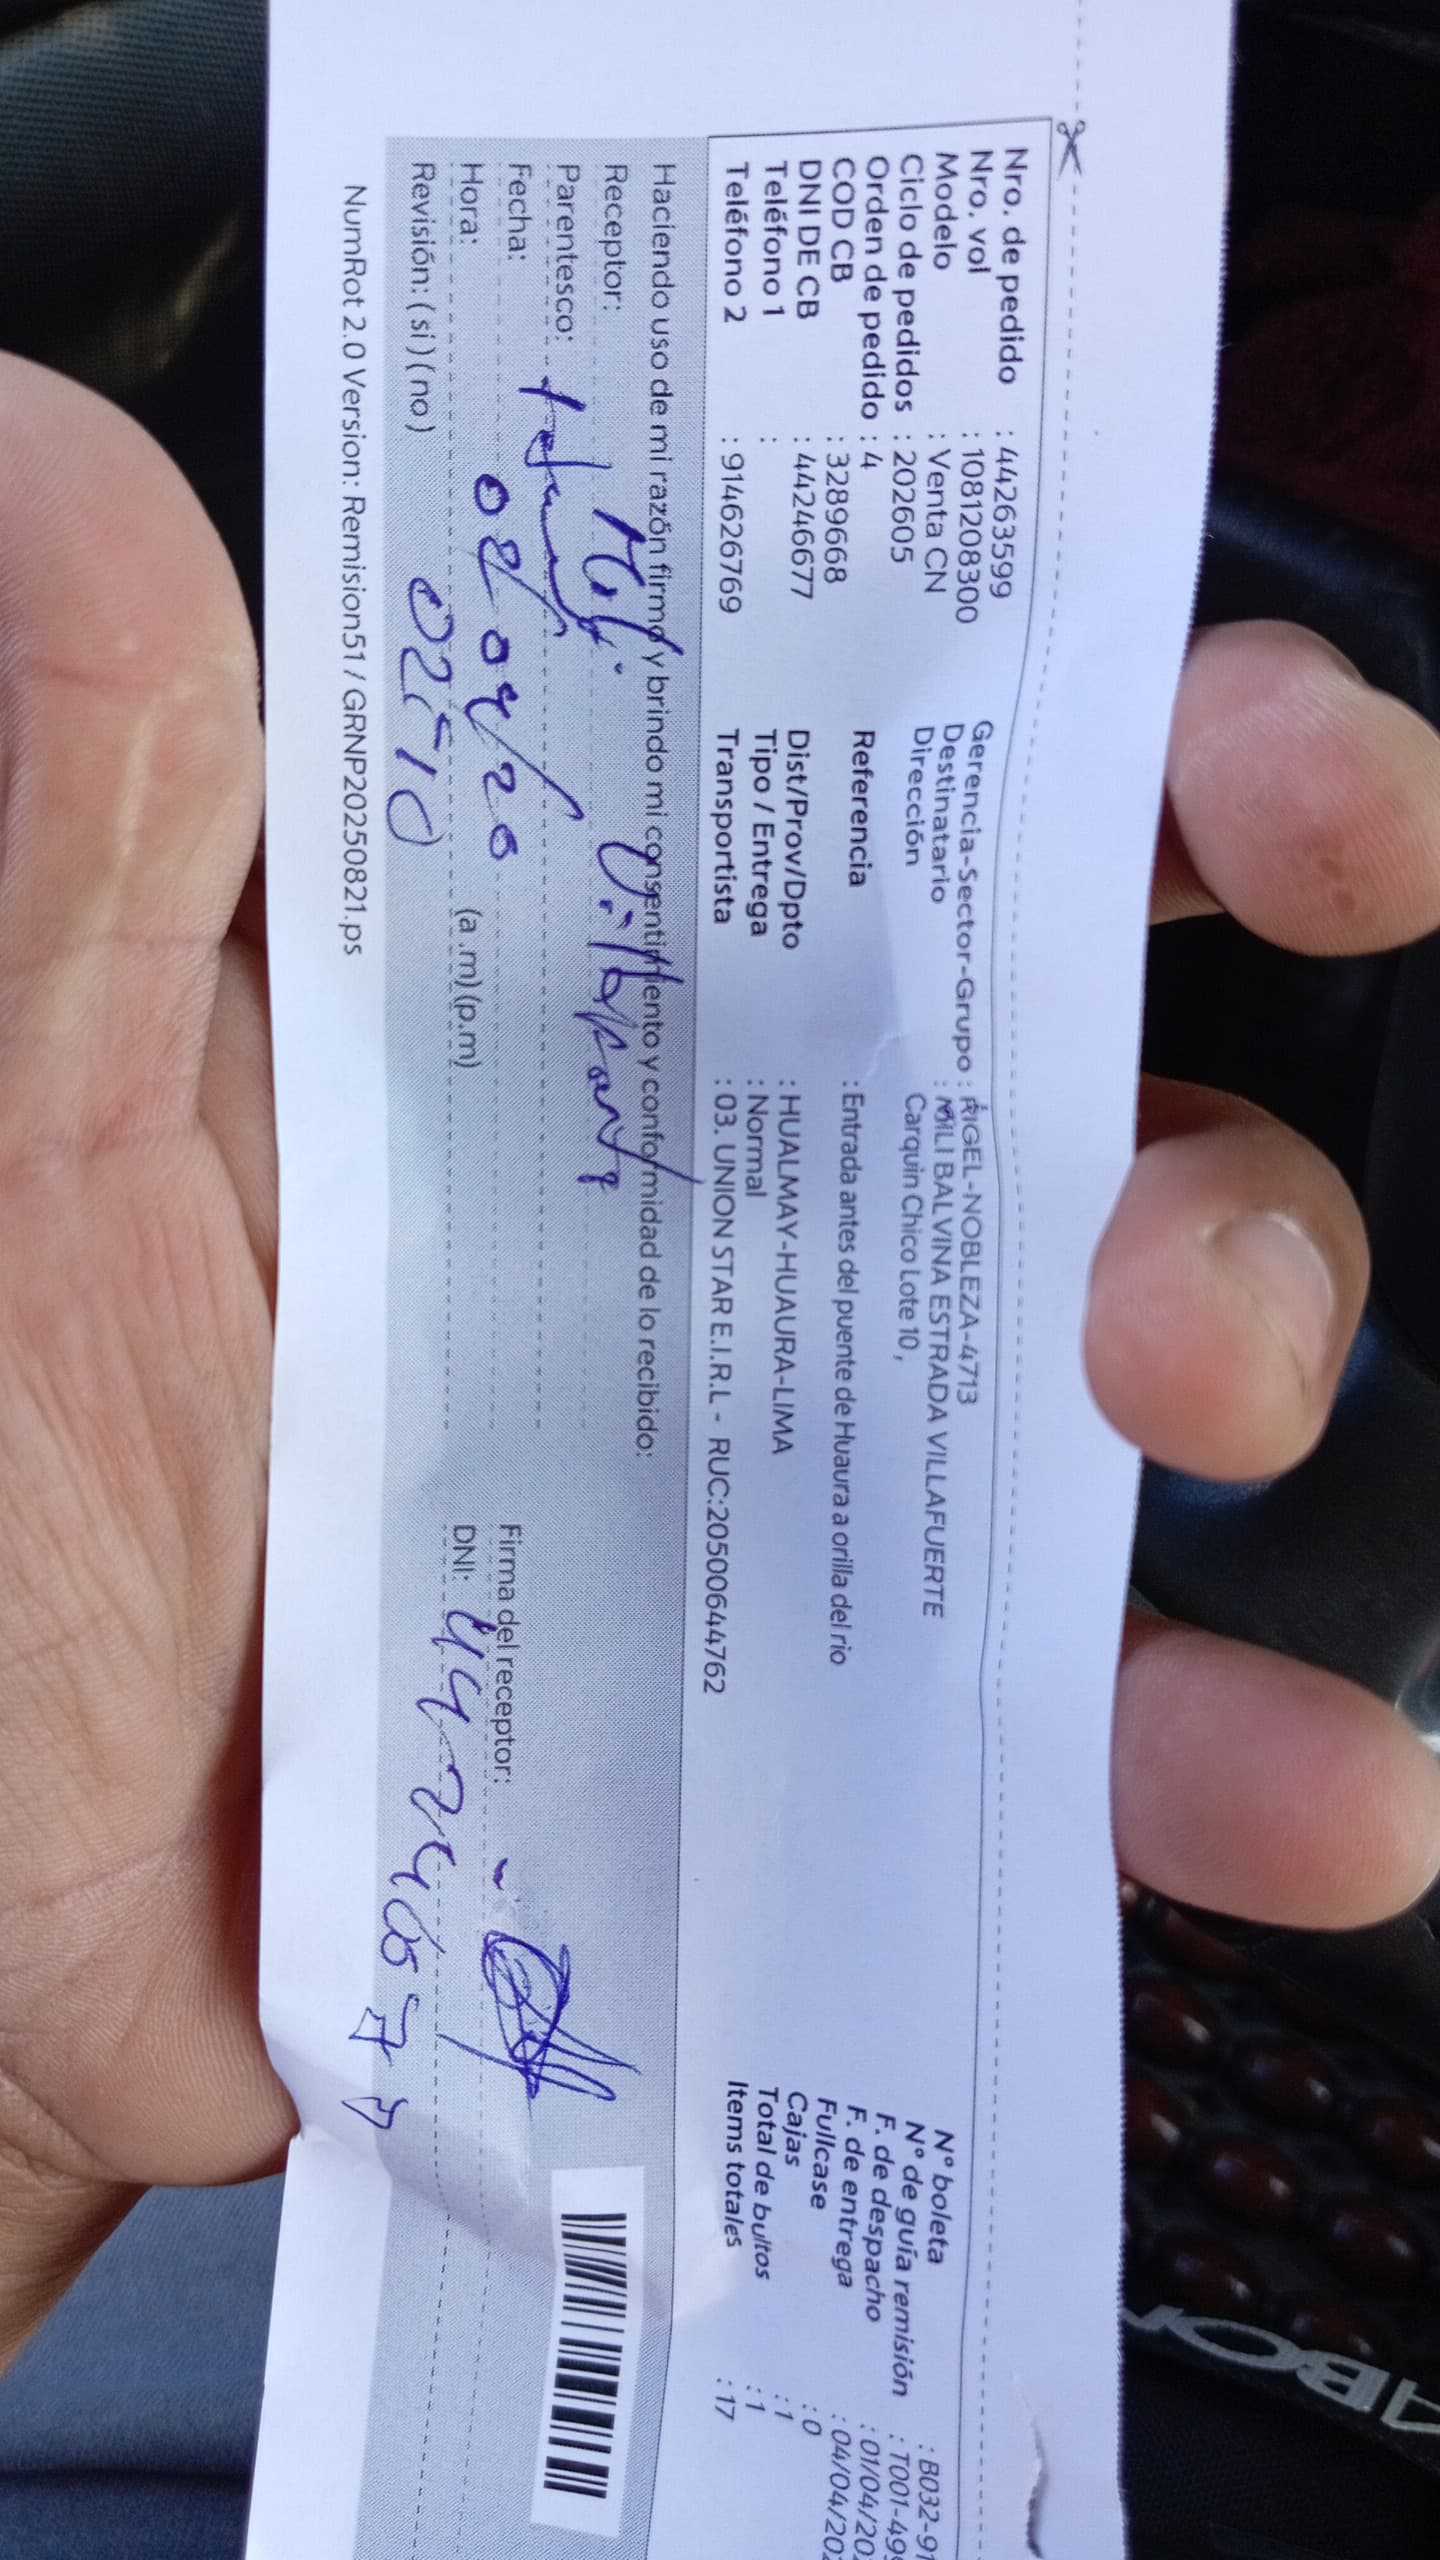 Nro. de pedido : 44263599
Nro. vol : 1081208300
Modelo : Venta CN
Ciclo de pedidos : 202605
Orden de pedido : 4
COD CB : 3289668
DNI DE CB : 44246677
Teléfono 1 :
Teléfono 2 : 914626769
Gerencia-Sector-Grupo : RIGEL-NOBLEZA-4713
Destinatario : MILI BALVINA ESTRADA VILLAFUERTE
Dirección Carquin Chico Lote 10 ,
Referencia : Entrada antes del puente de Huaura a orilla del rio
Dist/Prov/Dpto : HUALMAY-HUAURA-LIMA
Tipo / Entrega : Normal
Transportista : 03. UNION STAR E.I.R.L - RUC:20500644762
N° boleta : B032-91
N° de guía remisión : T001-49
F. de despacho : 01/04/20
F. de entrega : 04/04/20
Fullcase : 0
Cajas : 1
Total de bultos : 1
Items totales : 17
Haciendo uso de mi razón firmo y brindo mi consentimiento y conformidad de lo recibido:
Receptor: Mili
Parentesco:
Fecha:
Hora: (a .m) (p.m)
Revisión: ( si ) ( no )
Firma del receptor:
DNI:
NumRot 2.0 Version: Remision51 / GRNP20250821.ps
ABOR